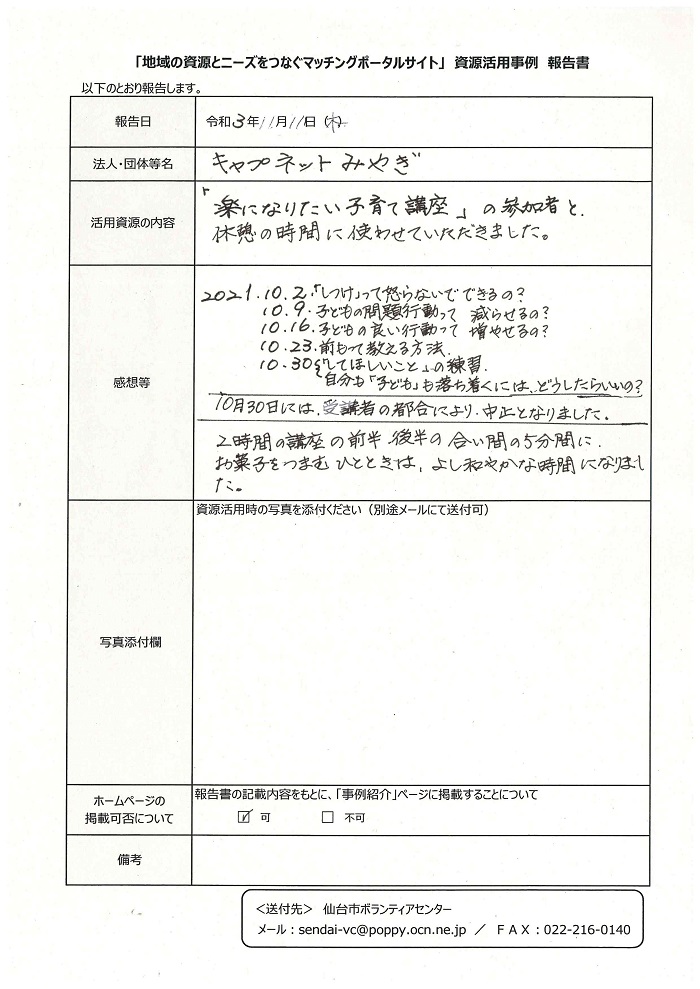 「地域の資源とニーズをつなぐマッチングポータルサイト」 資源活用事例 報告書
以下のとおり報告します。
報告日
令和3年11月11日(木)
法人・団体等名
キャプネットみやぎ
活用資源の内容
「楽になりたい子育て講座」の参加者と、
休憩の時間に使わせていただきました。
感想等
2021.10.2.「しつけ」って怒らないでできるの?
10.9.子どもの問題行動って 減らせるの?
10.16.子どもの良い行動って 増やせるの?
10.23.前もって教える方法.
10.30「してほしいこと」の練習.
自分も「子ども」も落ち着くには、どうしたらいいの?
10月30日には、受講者の都合により、中止となりました。
2時間の講座の前半・後半の合い間の5分間に、
お菓子をつまむひとときは、よし和やかな時間になりまし
た。
写真添付欄
資源活用時の写真を添付ください(別途メールにて送付可)
ホームページの
掲載可否について
報告書の記載内容をもとに、「事例紹介」ページに掲載することについて
☑ 可 □ 不可
備考
<送付先> 仙台市ボランティアセンター
メール:sendai-vc@poppy.ocn.ne.jp / FAX:022-216-0140